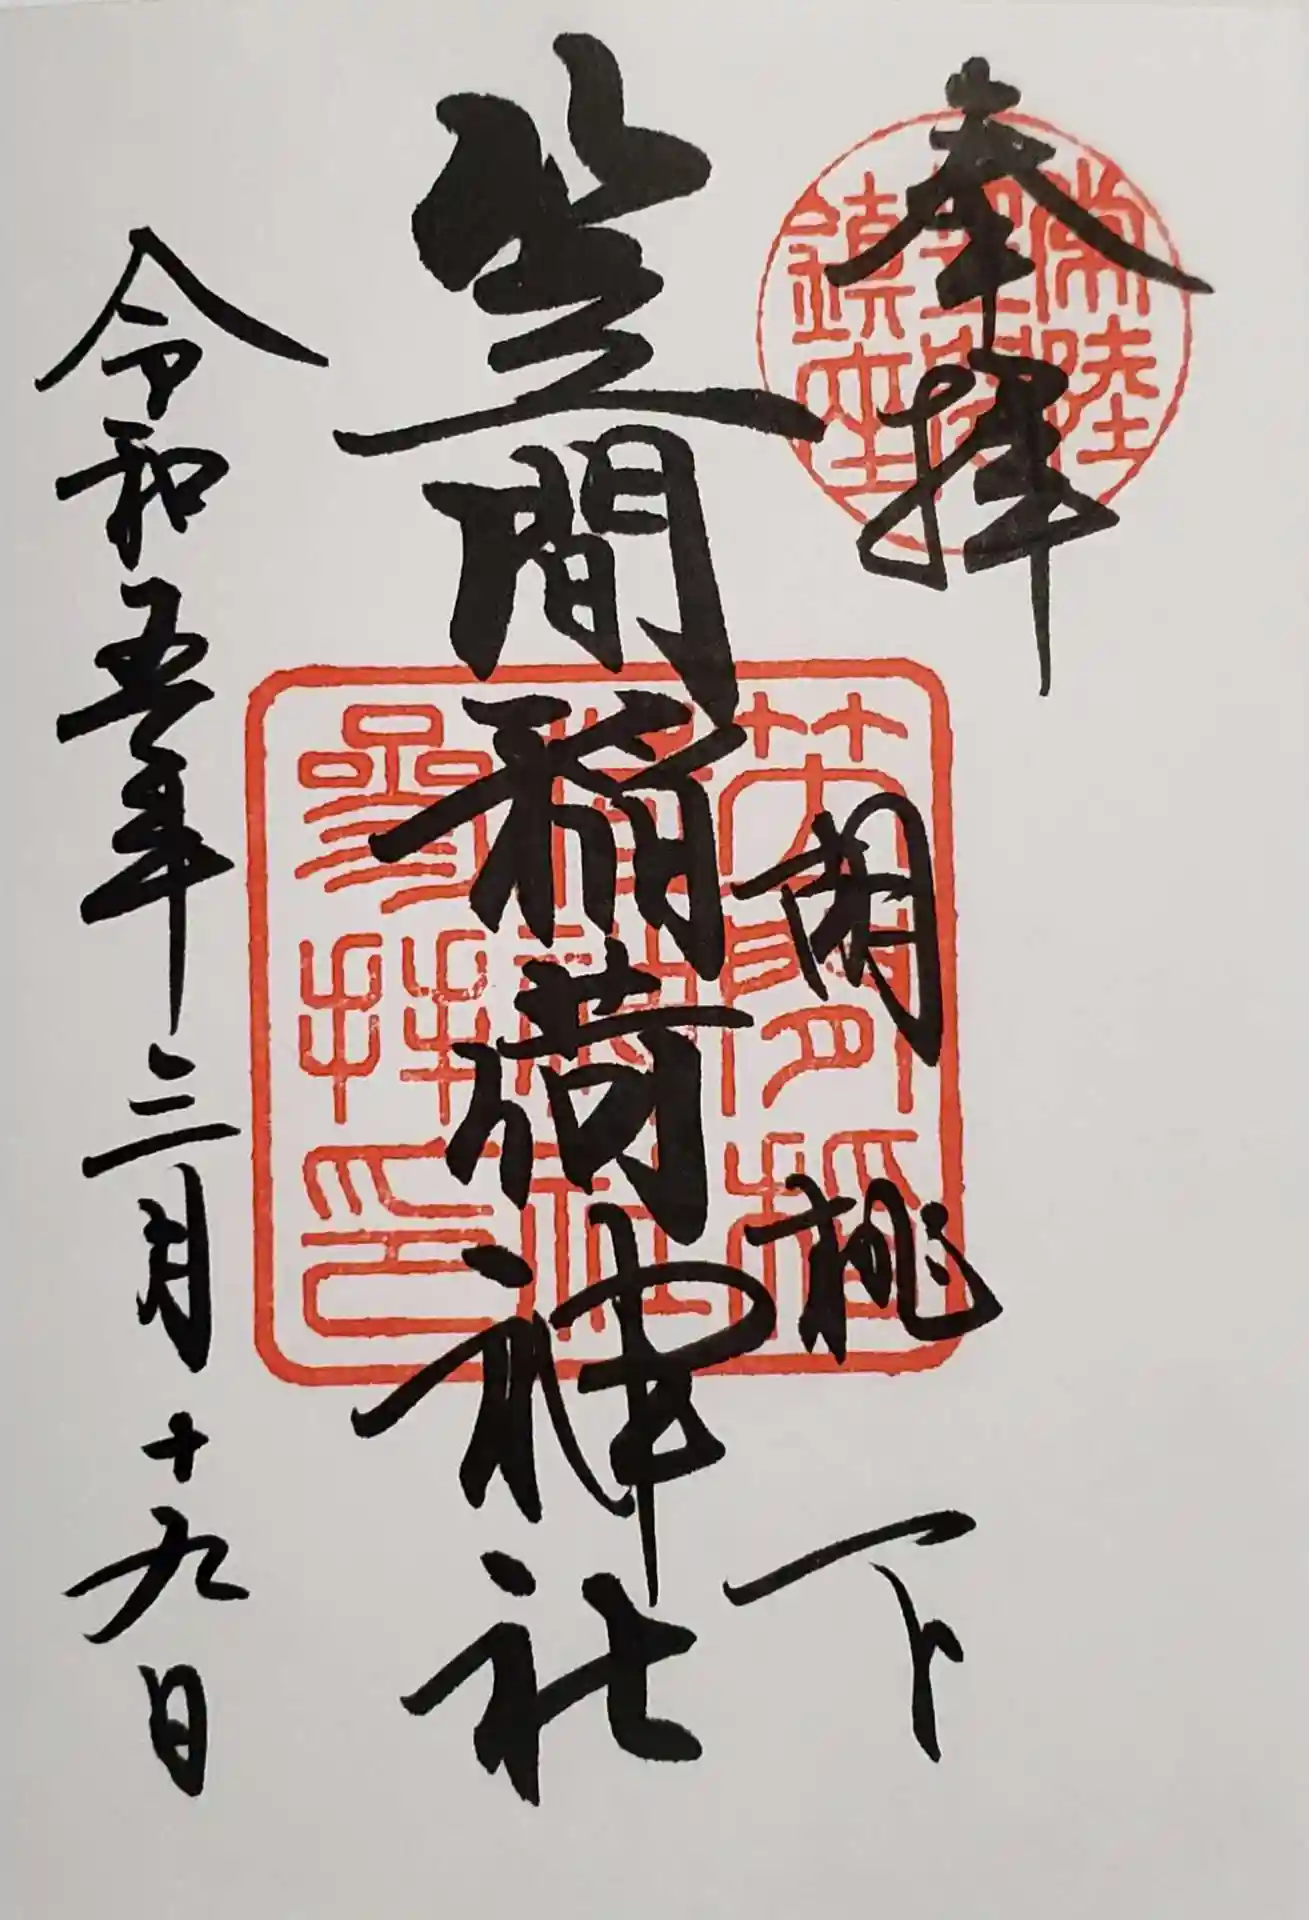 奉拝
胡桃下
笠間稲荷神社
令和五年三月十九日
常陸
鎮座
笠間稲
荷神社
參拝印